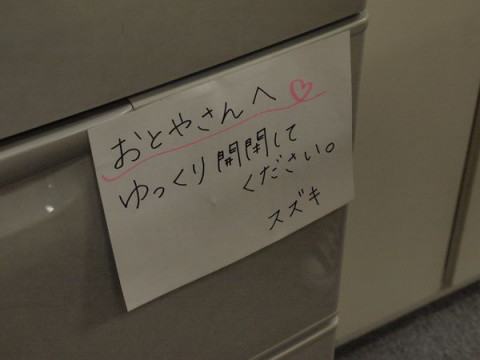 おとやさんへ♡
ゆっくり開関して
ください。
スズキ